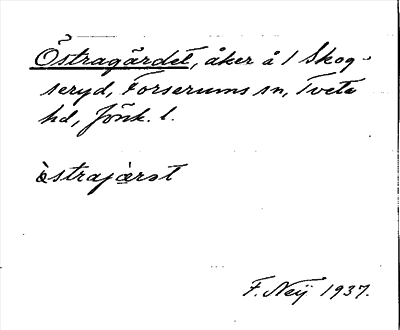 Östragärdet, åker å 1 Skog-
seryd, Forserums sn, Tveta
hd, Jönk. l.
östrajærət
F. Neij 1937.